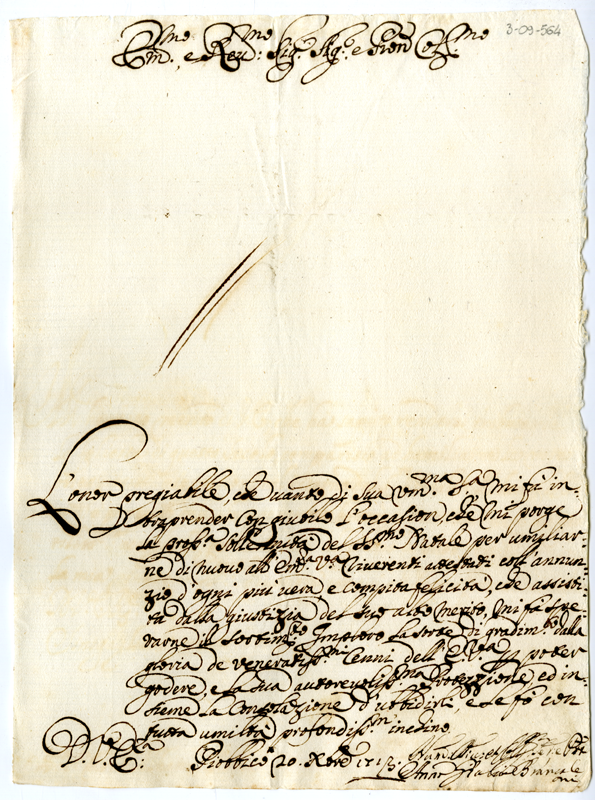 3-09-564
Em.mo e Rev.mo Sig.r Sig.r e Pron Col.mo
L'onor pregiabile, che vanto di Sua Um.ma La mi fà in-
traprender con giubilo l'occasion, che mi porge
la pross.a Sollennità del SS.mo Natale per umiliar-
ne di nuovo all'Em.za V.a riverenti attestati coll'annun-
zio d'ogni più vera e compita felicità, che assisti-
ta dalla giustizia del suo alto merito, mi fà spe-
rarne il Sortim.to Imploro la sorte di gradim.to dalla
gloria de veneratiss.mi Cenni dell'E. V.ra in poter
godere, e la sua autorevoliss.ma Protezzione, ed in-
sieme la Consolazione d'ubbidirla, e le fò con
tutta umiltà profondiss.m inchino
D. V. E.za
Piobbico 20. 1713.